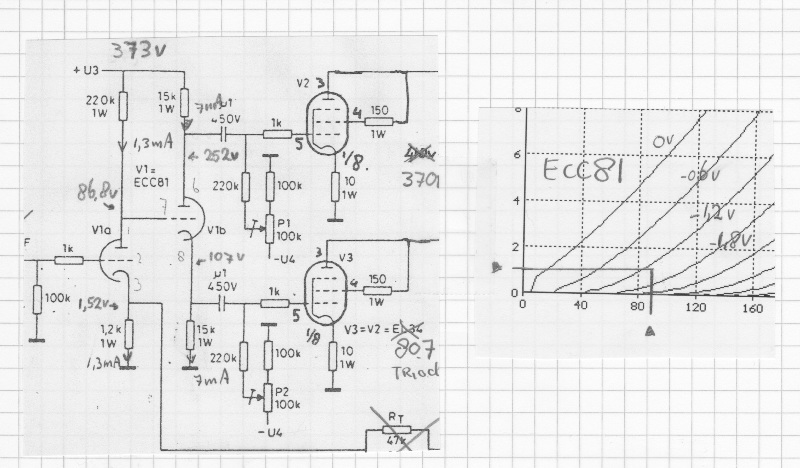 373V
+ U3
220k
1W
15k
1W
7mA
µ1
450V
1k
V2
3
4
5
150
1W
1/8.
1,3mA
V1=
ECC81
252V
86,8V
6
7
8
220k
100k
P1
100k
-U4
10
1W
V1a
V1b
1
2
3
F
1k
100k
107V
µ1
450V
1k
V3
3
4
5
150
1W
1/8
V3=V2=EL34
807
1,52V
1,2k
1W
1,3mA
15k
1W
7mA
220k
100k
P2
100k
-U4
10
1W
RT
47k
ECC81
8
6
4
2
0
0V
-0,6V
-1,2V
-1,8V
0
40
80
120
160
A